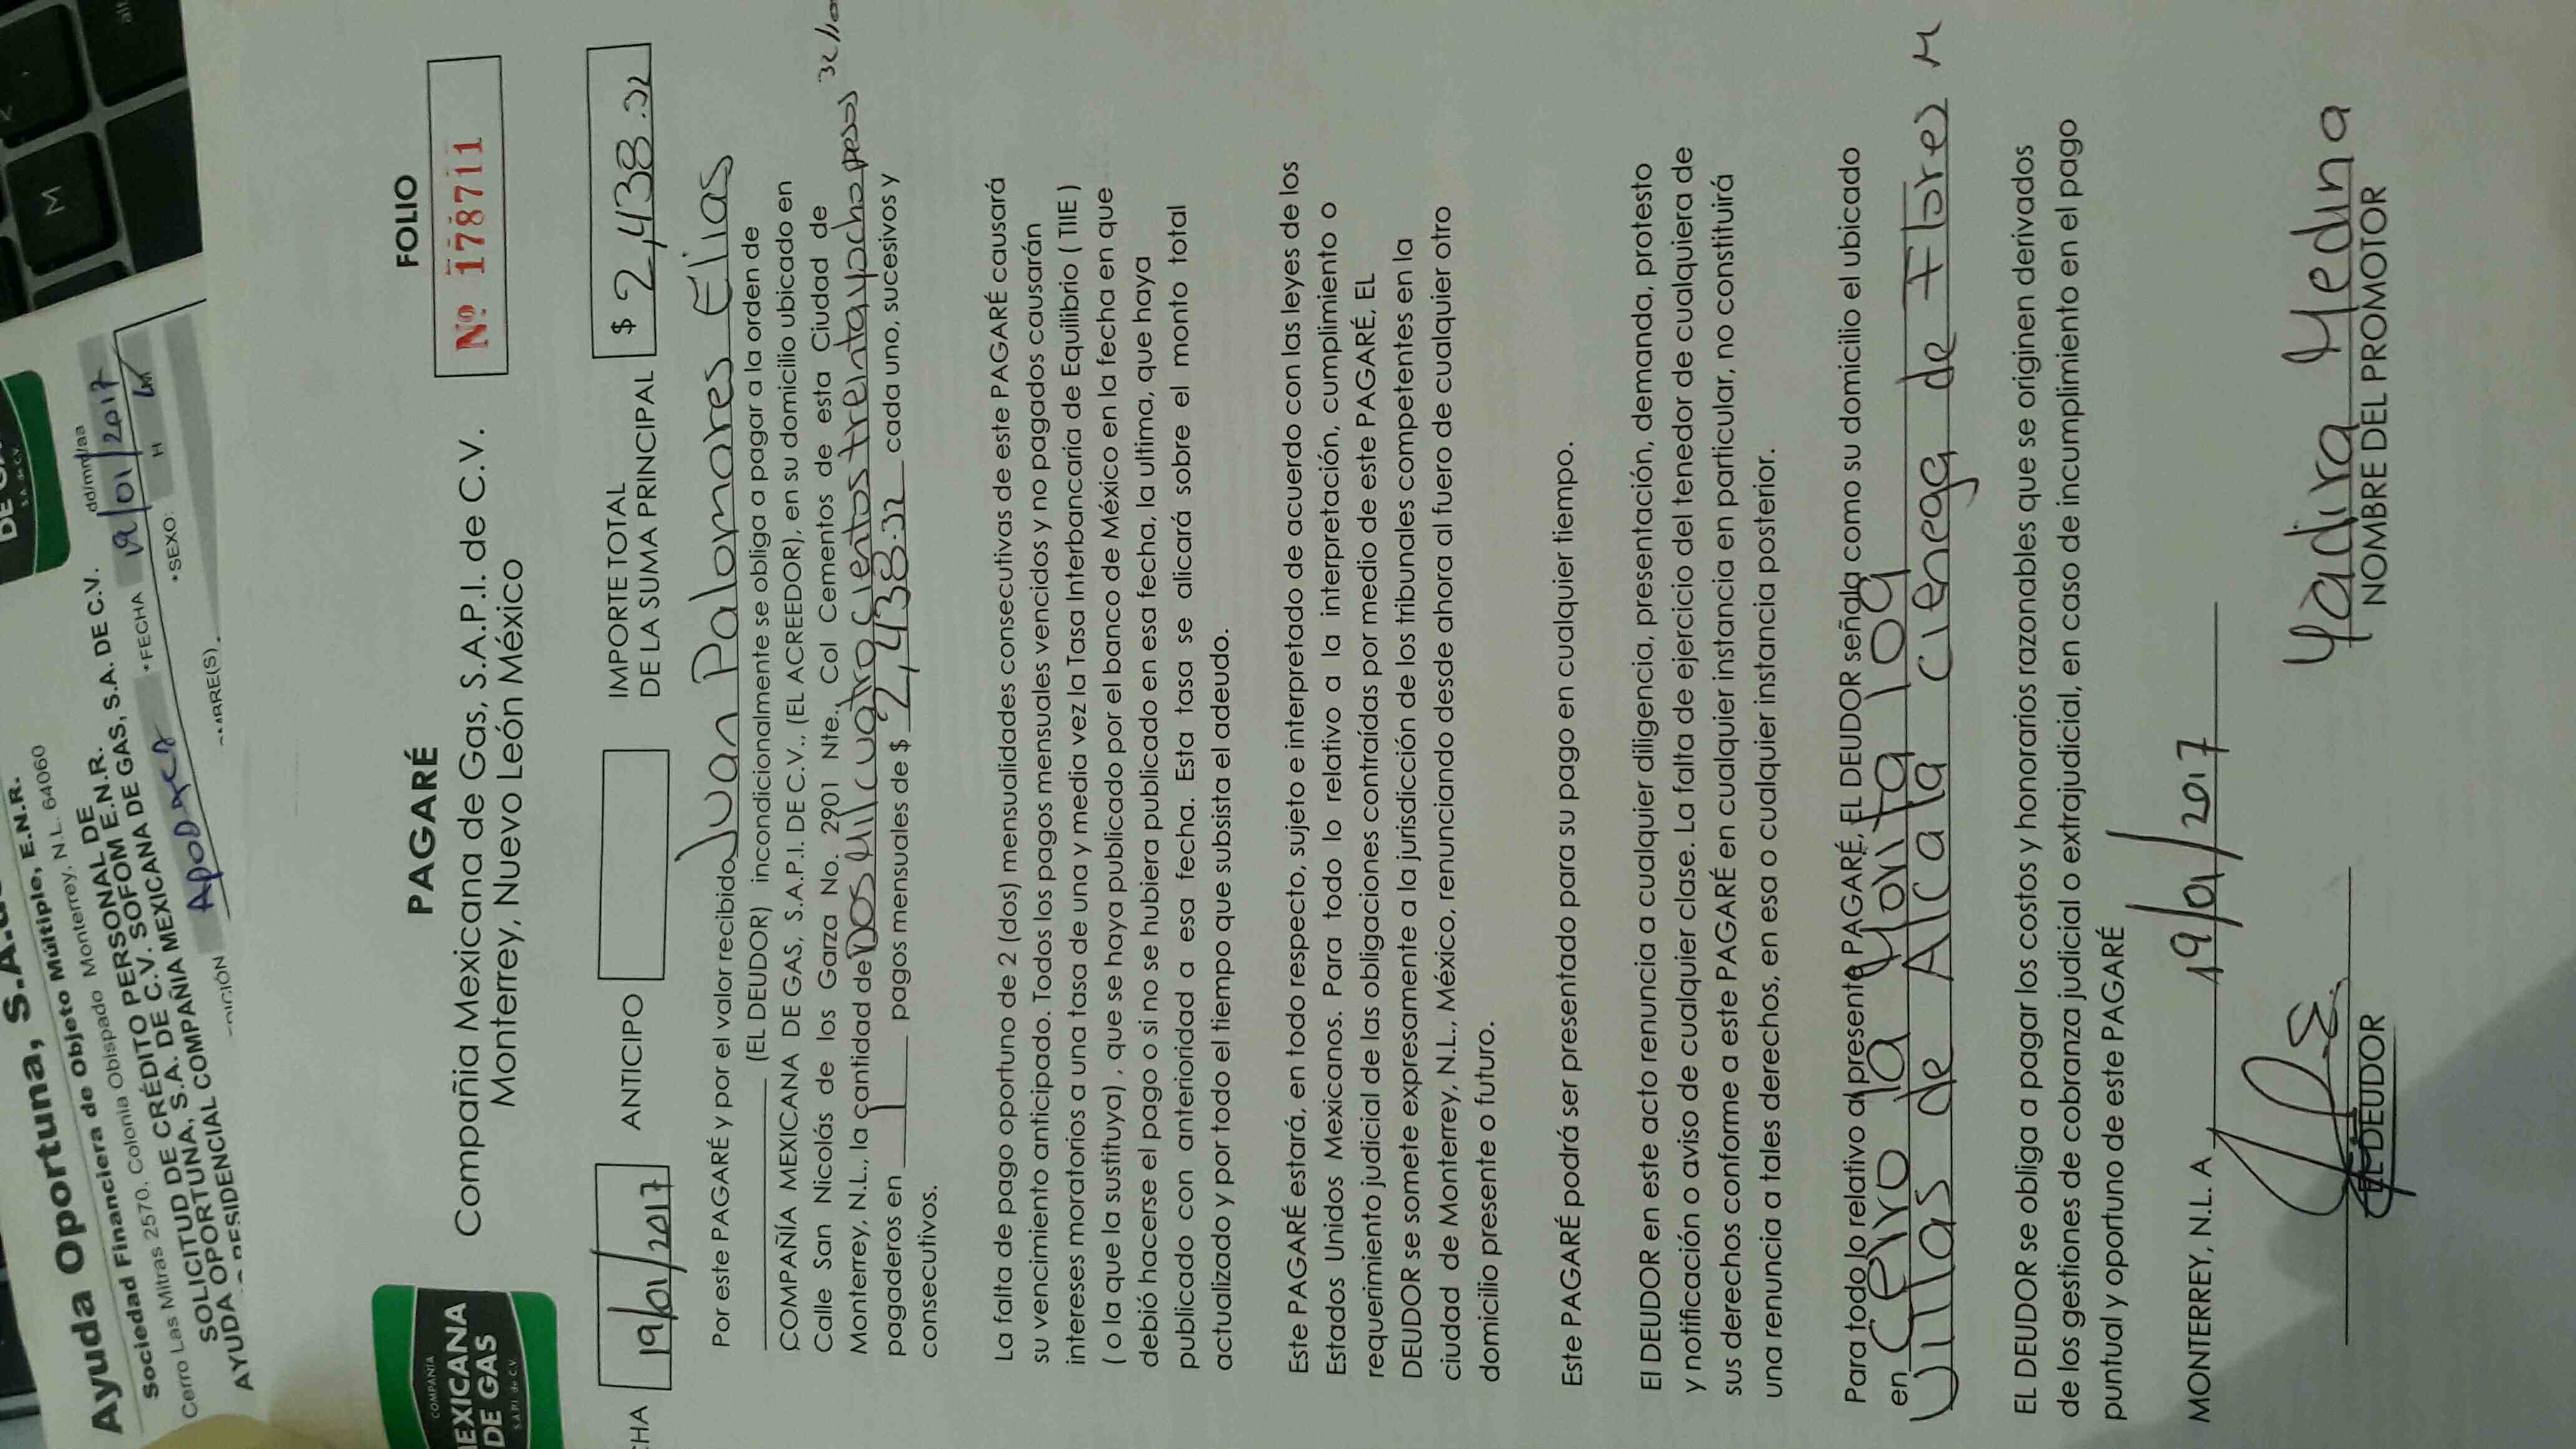 DE GAS
S.A. de C.V.
Ayuda Oportuna, S.A.
Sociedad Financiera de Objeto Múltiple, E.N.R.
Cerro Las Mitras 2570, Colonia Obispado Monterrey, N.L. 64060
SOLICITUD DE CRÉDITO PERSONAL DE
AYUDA OPORTUNA, S.A. DE C.V. SOFOM E.N.R.
RESIDENCIAL COMPAÑIA MEXICANA DE GAS, S.A. DE C.V.
dd/mm/aa
APODACA
*FECHA 19/01/2017
*SEXO: H
COMPAÑIA
MEXICANA
DE GAS
S.A.P.I. de C.V.
PAGARÉ
Compañía Mexicana de Gas, S.A.P.I. de C.V.
Monterrey, Nuevo León México
FOLIO
Nº 178711
CHA 19/01/2017 ANTICIPO IMPORTE TOTAL
DE LA SUMA PRINCIPAL $ 2,438.32
Por este PAGARÉ y por el valor recibido Juan Palomares Elias
(EL DEUDOR) incondicionalmente se obliga a pagar a la orden de
COMPAÑÍA MEXICANA DE GAS, S.A.P.I. DE C.V., (EL ACREEDOR), en su domicilio ubicado en
Calle San Nicolás de los Garza No. 2901 Nte., Col Cementos de esta Ciudad de
Monterrey, N.L., la cantidad de Dos Mil cuatrocientos treinta y ocho pesos 32/100
pagaderos en 1 pagos mensuales de $ 2,438.32 cada uno, sucesivos y
consecutivos.
La falta de pago oportuno de 2 (dos) mensualidades consecutivas de este PAGARÉ causará
su vencimiento anticipado. Todos los pagos mensuales vencidos y no pagados causarán
intereses moratorios a una tasa de una y media vez la Tasa Interbancaria de Equilibrio ( TIIE )
( o la que la sustituya) , que se haya publicado por el banco de México en la fecha en que
debió hacerse el pago o si no se hubiera publicado en esa fecha, la ultima, que haya
publicado con anterioridad a esa fecha. Esta tasa se alicará sobre el monto total
actualizado y por todo el tiempo que subsista el adeudo.
Este PAGARÉ estará, en todo respecto, sujeto e interpretado de acuerdo con las leyes de los
Estados Unidos Mexicanos. Para todo lo relativo a la interpretación, cumplimiento o
requerimiento judicial de las obligaciones contraídas por medio de este PAGARÉ, EL
DEUDOR se somete expresamente a la jurisdicción de los tribunales competentes en la
ciudad de Monterrey, N.L., México, renunciando desde ahora al fuero de cualquier otro
domicilio presente o futuro.
Este PAGARÉ podrá ser presentado para su pago en cualquier tiempo.
El DEUDOR en este acto renuncia a cualquier diligencia, presentación, demanda, protesto
y notificación o aviso de cualquier clase. La falta de ejercicio del tenedor de cualquiera de
sus derechos conforme a este PAGARÉ en cualquier instancia en particular, no constituirá
una renuncia a tales derechos, en esa o cualquier instancia posterior.
Para todo lo relativo al presente PAGARÉ, EL DEUDOR señala como su domicilio el ubicado
en Cerro la Morita 109
Villas de Alcala Cienega de Flores M
El DEUDOR se obliga a pagar los costos y honorarios razonables que se originen derivados
de los gestiones de cobranza judicial o extrajudicial, en caso de incumplimiento en el pago
puntual y oportuno de este PAGARÉ
MONTERREY, N.L. A 19/01/2017
EL DEUDOR
Yadira Medina
NOMBRE DEL PROMOTOR